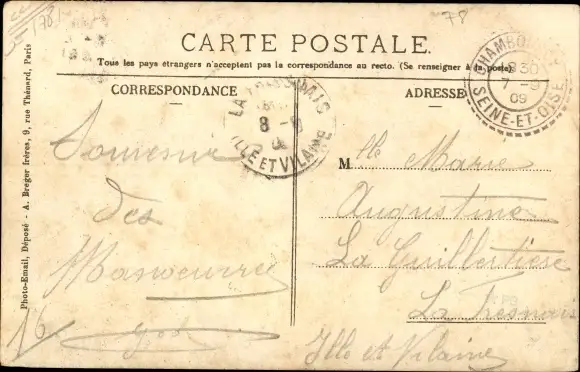 78
CARTE POSTALE.
Tous les pays étrangers n'acceptent pas la correspondance au recto. (Se renseigner à la poste)
CORRESPONDANCE
ADRESSE
CHAMBO
18 30
7 - 9
09
SEINE-ET-OISE
8 - 9
ILLE ET VILAINE
Souvenir
des
Manoeuvres
Mlle Marie
Augustine
La Guillertière
La Fresnais
Ille et Vilaine
Photo-Email, Déposé - A. Breger frères, 9, rue Thénard, Paris